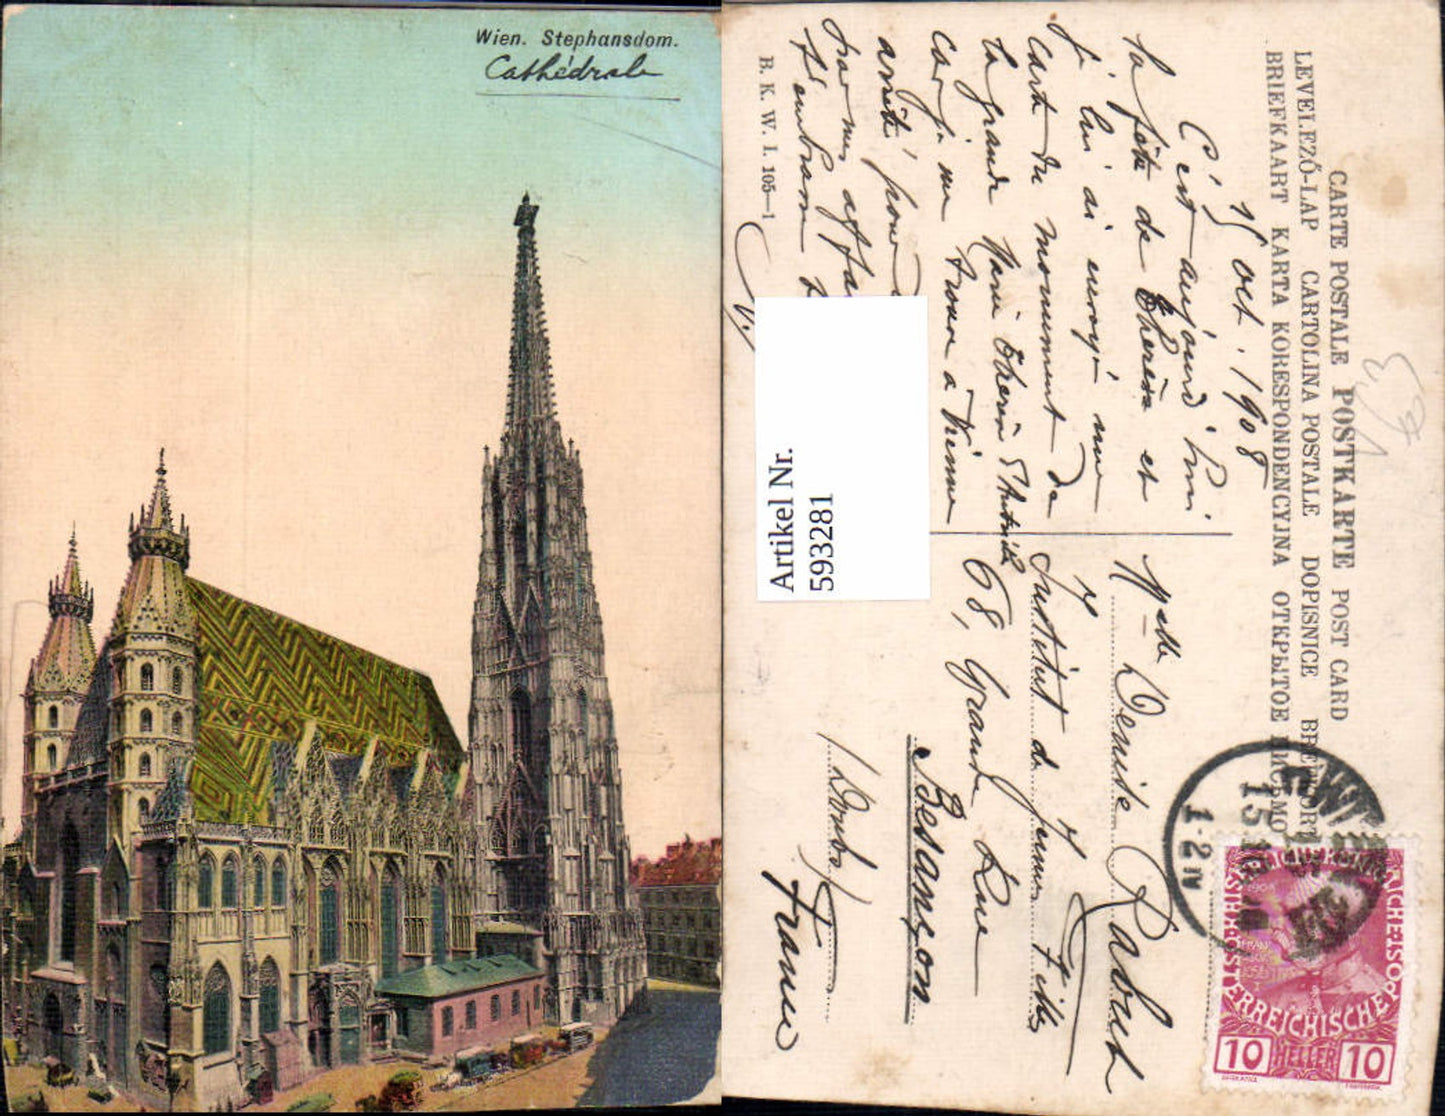 Wien. Stephansdom.
Cathédrale
CARTE POSTALE POSTKARTE POST CARD
LEVELEZŐ-LAP CARTOLINA POSTALE DOPISNICE
BRIEFKAART KARTA KORESPONDENCYJNA ОТКРЫТОЕ
15 oct. 1908
C'est aujourd'hui
la fête de Thérèse et
je lui ai envoyé une
carte du monument de
la grande Marie Thérèse d'Autriche
car je me trouve à Vienne
arrêté pour
B. K. W. I. 105-1
Artikel Nr.
593281
Melle Denise Rabout
Institut de Jeunes Filles
68, Grande Rue
Besançon
(Doubs)
France
WIEN
1-2N
10 HELLER 10